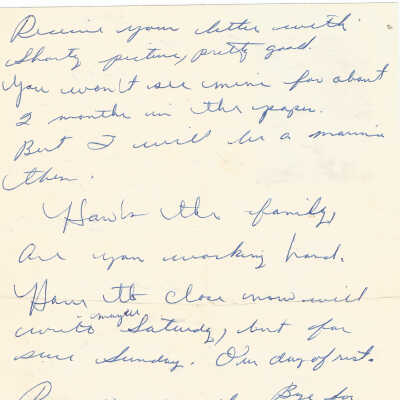 Receive your letter with
Shorty picture, pretty good.
You won't see mine for about
2 months in the paper.
But I will be a marine
then.
How's the family,
are you working hard.
Have to close now will
write mayber Saturdy, but for
sure Sunday. Our day of rest.
Bye for